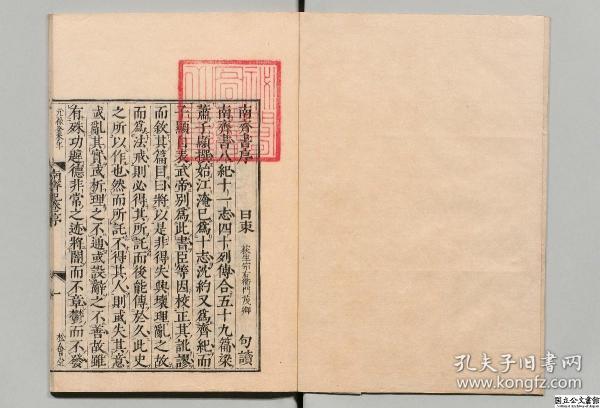 南齊書序
日東 荻生宗右衛門茂卿 句讀
南齊書八紀十一志四十列傳合五十九篇梁
蕭子顯撰始江淹已爲十志沈約又爲齊紀而
子顯自表武帝別爲此書臣等因校正其訛謬
而敘其篇目曰將以是非得失興壞理亂之故
而爲法戒則必得其所託而後能傳於久此史
之所以作也然而所託不得其人則或失其意
或亂其實或析理之不通或設辭之不善故雖
有殊功韙德非常之迹將闇而不章鬱而不發
南齊書序
一
松會堂
孔夫子旧书网
www.kongfz.com
国立公文書館